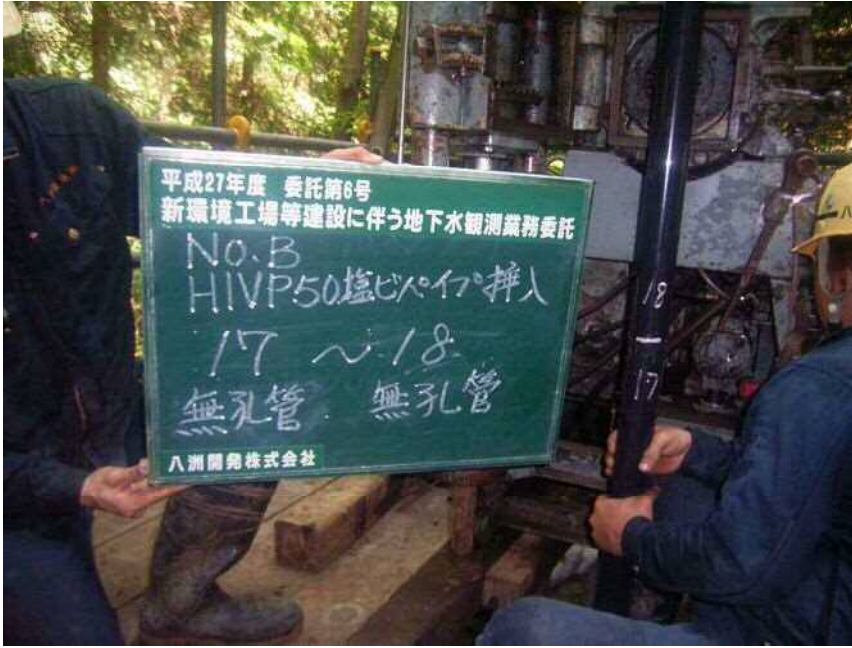 平成27年度 委託第6号
新環境工場等建設に伴う地下水観測業務委託
No.B
HIVP50塩ビパイプ挿入
17 〜 18
無孔管 無孔管
八洲開発株式会社
18
17
八